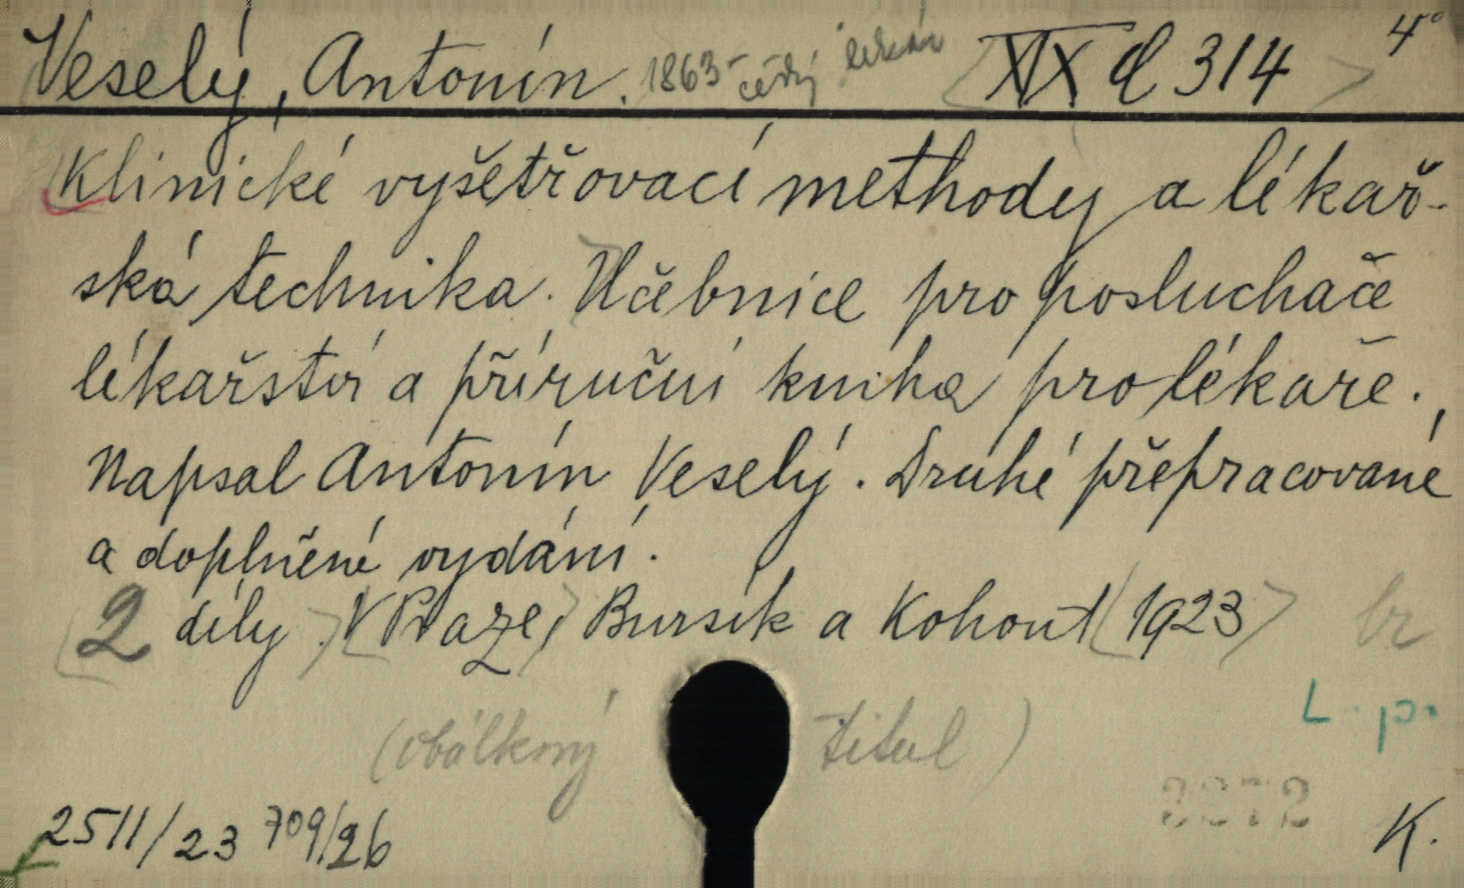 Veselý, Antonín. 1863- český lékař XIX d 314 4°
Klinické vyšetřovací methody a lékař-
ská technika. Učebnice pro posluchače
lékařství a příruční kniha pro lékaře.
Napsal Antonín Veselý. Druhé přepracované
a doplněné vydání.
2 díly. V Praze, Bursík a Kohout 1923 br
L. p.
(obálkový titul)
2511/23 709/26 K.